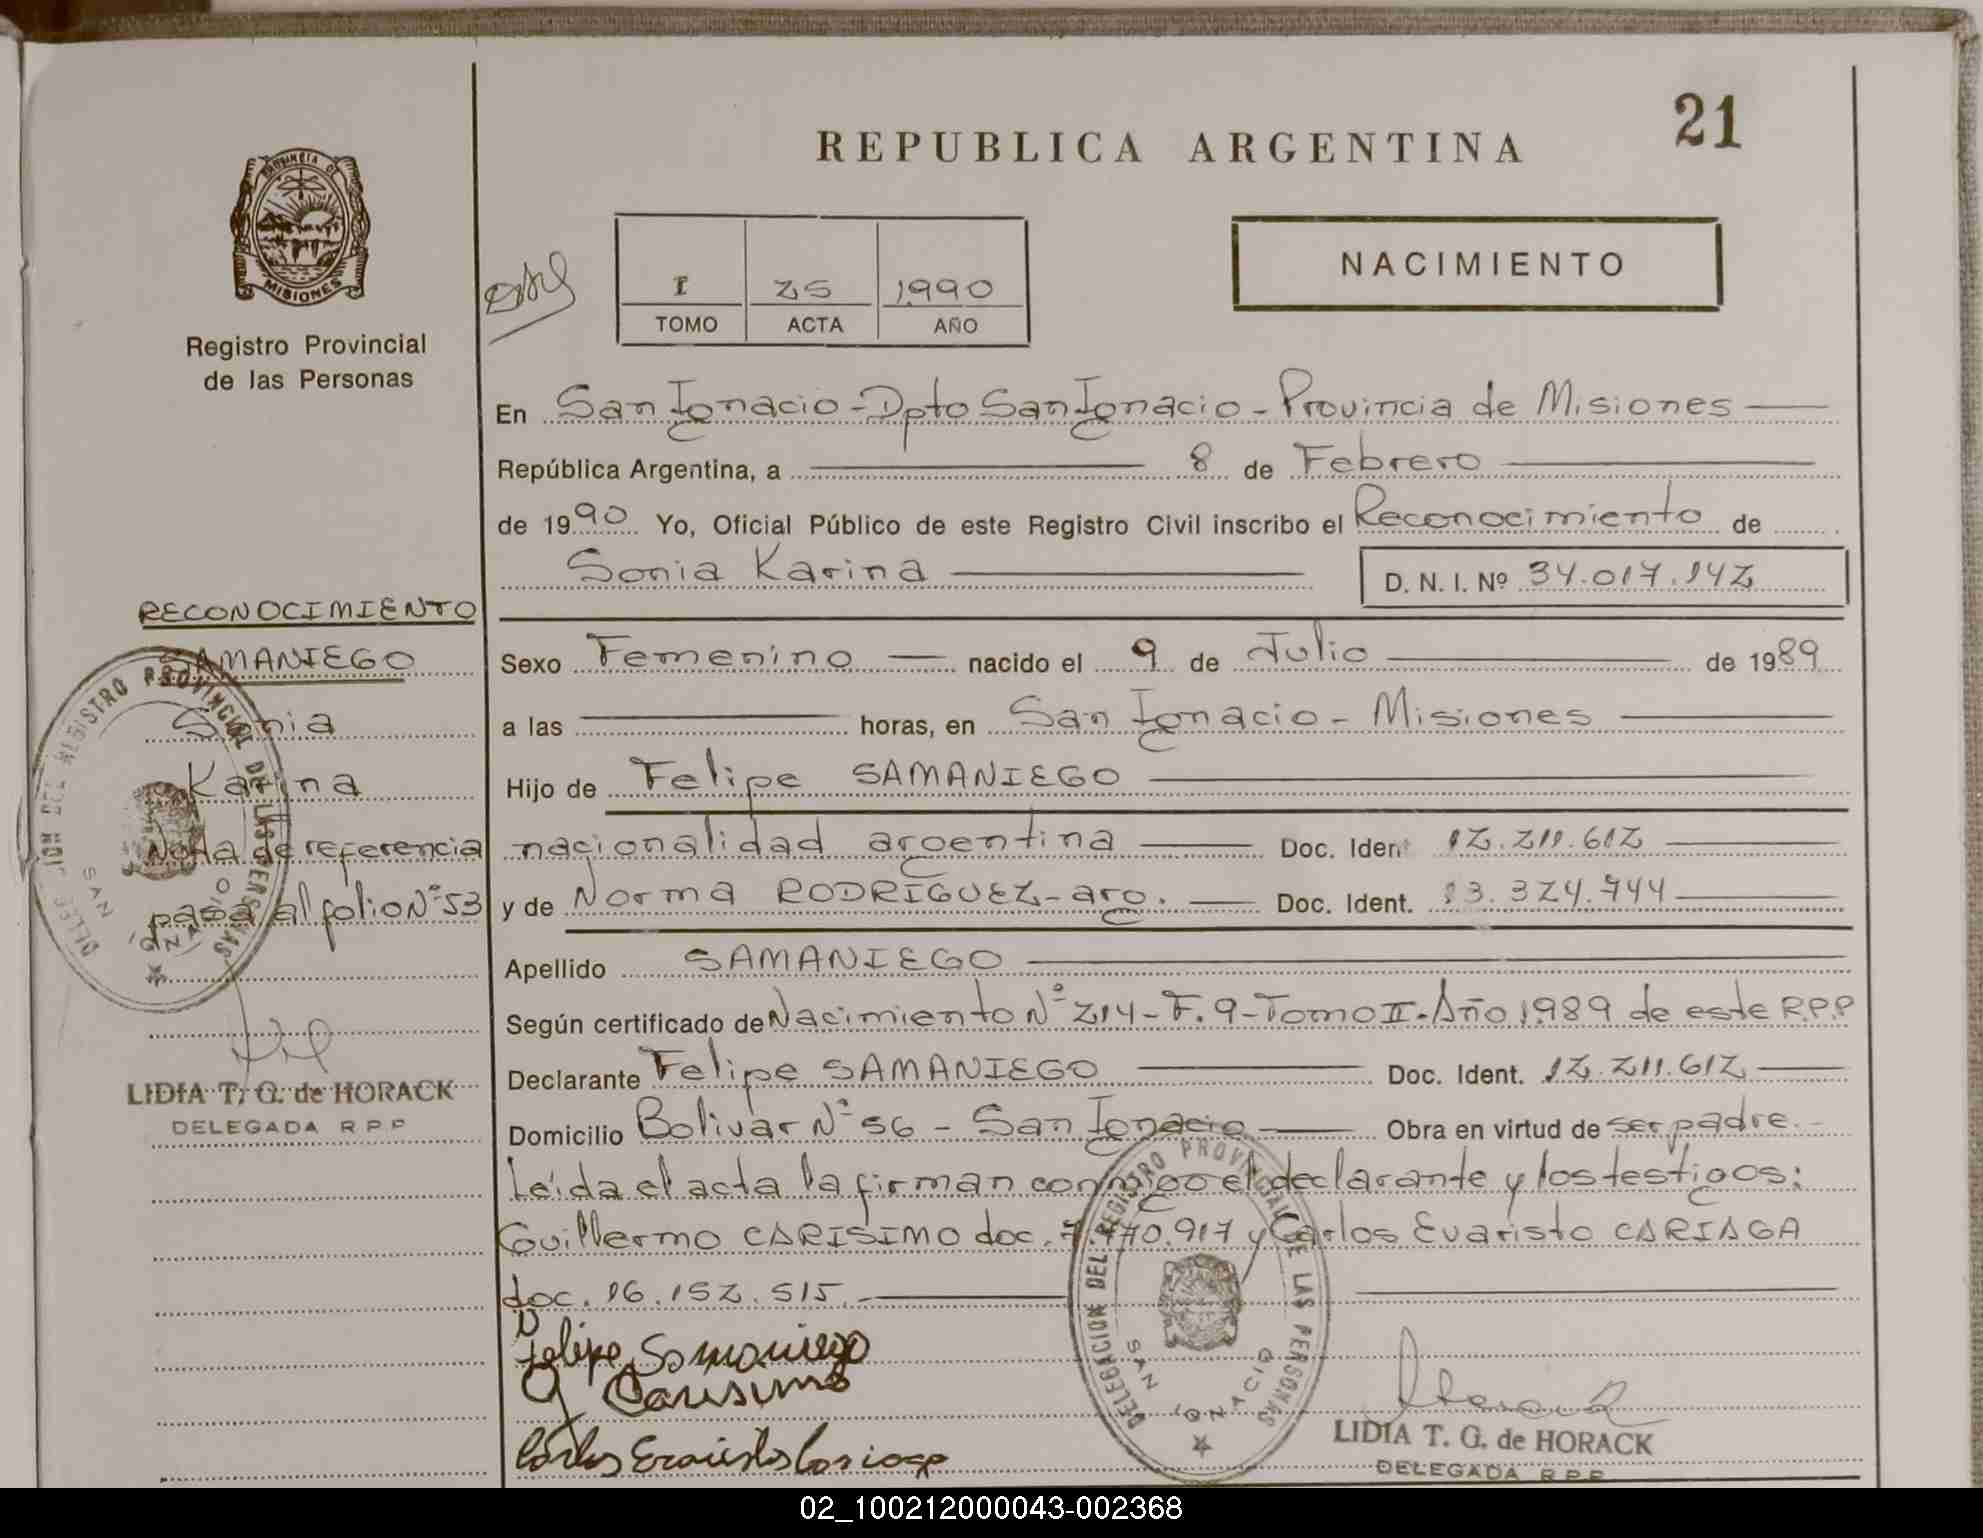 21
REPUBLICA ARGENTINA
PROVINCIA DE
MISIONES
Registro Provincial
de las Personas
I 25 1990
TOMO ACTA AÑO
NACIMIENTO
En San Ignacio - Dpto San Ignacio - Provincia de Misiones
República Argentina, a 8 de Febrero
de 1990 Yo, Oficial Público de este Registro Civil inscribo el Reconocimiento de
Sonia Karina D. N. I. Nº 34.017.142
Sexo Femenino nacido el 9 de Julio de 1989
a las horas, en San Ignacio - Misiones
Hijo de Felipe SAMANIEGO
nacionalidad argentina Doc. Ident 12.211.612
y de Norma RODRIGUEZ - arg. Doc. Ident. 13.324.744
Apellido SAMANIEGO
Según certificado de Nacimiento Nº 214 - F. 9 - Tomo II - Año 1989 de este R.P.P
Declarante Felipe SAMANIEGO Doc. Ident. 12.211.612
Domicilio Bolivar Nº 56 - San Ignacio Obra en virtud de ser padre.-
Leida el acta la firman conmigo el declarante y los testigos:
Guillermo CARISIMO doc. 7.770.917 y Carlos Evaristo CARIAGA
doc. 16.152.515.
Felipe Samaniego
G Carisimo
Carlos Evaristo Cariaga
DELEGACION DEL REGISTRO PROVINCIAL DE LAS PERSONAS
SAN IGNACIO
LIDIA T. G. de HORACK
DELEGADA R.P.P.
RECONOCIMIENTO
SAMANIEGO
Sonia
Karina
Nota de referencia
pasa al folio Nº 53
DELEGACION DEL REGISTRO PROVINCIAL DE LAS PERSONAS
SAN IGNACIO
LIDIA T. G. de HORACK
DELEGADA R P P
02_100212000043-002368